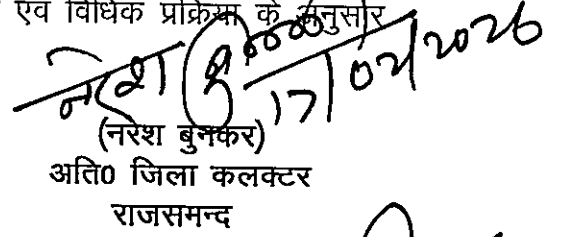 एवं विधिक प्रक्रिया के अनुसार
नरेश
17/02/2026
(नरेश बुनकर)
अति0 जिला कलक्टर
राजसमन्द